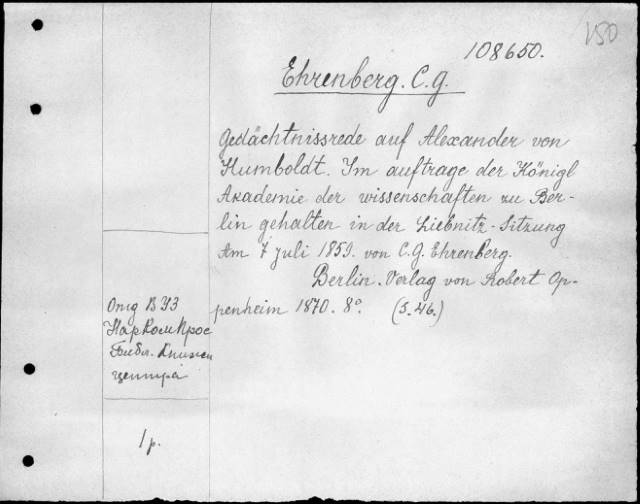 150
108650.
Ehrenberg. C. G.
Gedächtnissrede auf Alexander von
Humboldt. Im auftrage der Königl
Akademie der wissenschaften zu Ber-
lin gehalten in der Liebnitz-Sitzung
Am 7 Juli 1859. von C. G. Ehrenberg.
Berlin. Verlag von Robert Op-
penheim 1870. 8°. (S. 46.)
Отд ВУЗ
НарКом Прос
Библ.
центра
1 р.